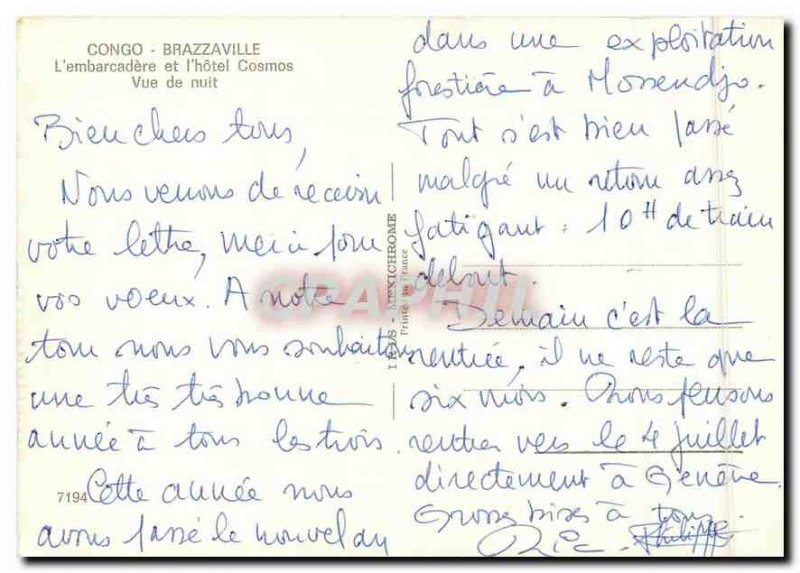 CONGO - BRAZZAVILLE
L'embarcadère et l'hôtel Cosmos
Vue de nuit
Bien chers tous,
Nous venons de recevoir
votre lettre, merci pour
vos voeux. A notre
tour nous vous souhaitons
une très très bonne
année à tous les trois.
7194
Cette année nous
avons passé le nouvel an
IRIS - MEXICHROME
Printed in France
CPAPHIL
dans une exploitation
forestière à Mossendjo.
Tout s'est bien passé
malgré un retour assez
fatigant : 10H de train
debout.
Demain c'est la
rentrée, il ne reste que
six mois. Nous pensons
rentrer vers le 4 juillet
directement à Genève.
Grosses bises à tous.
Philippe